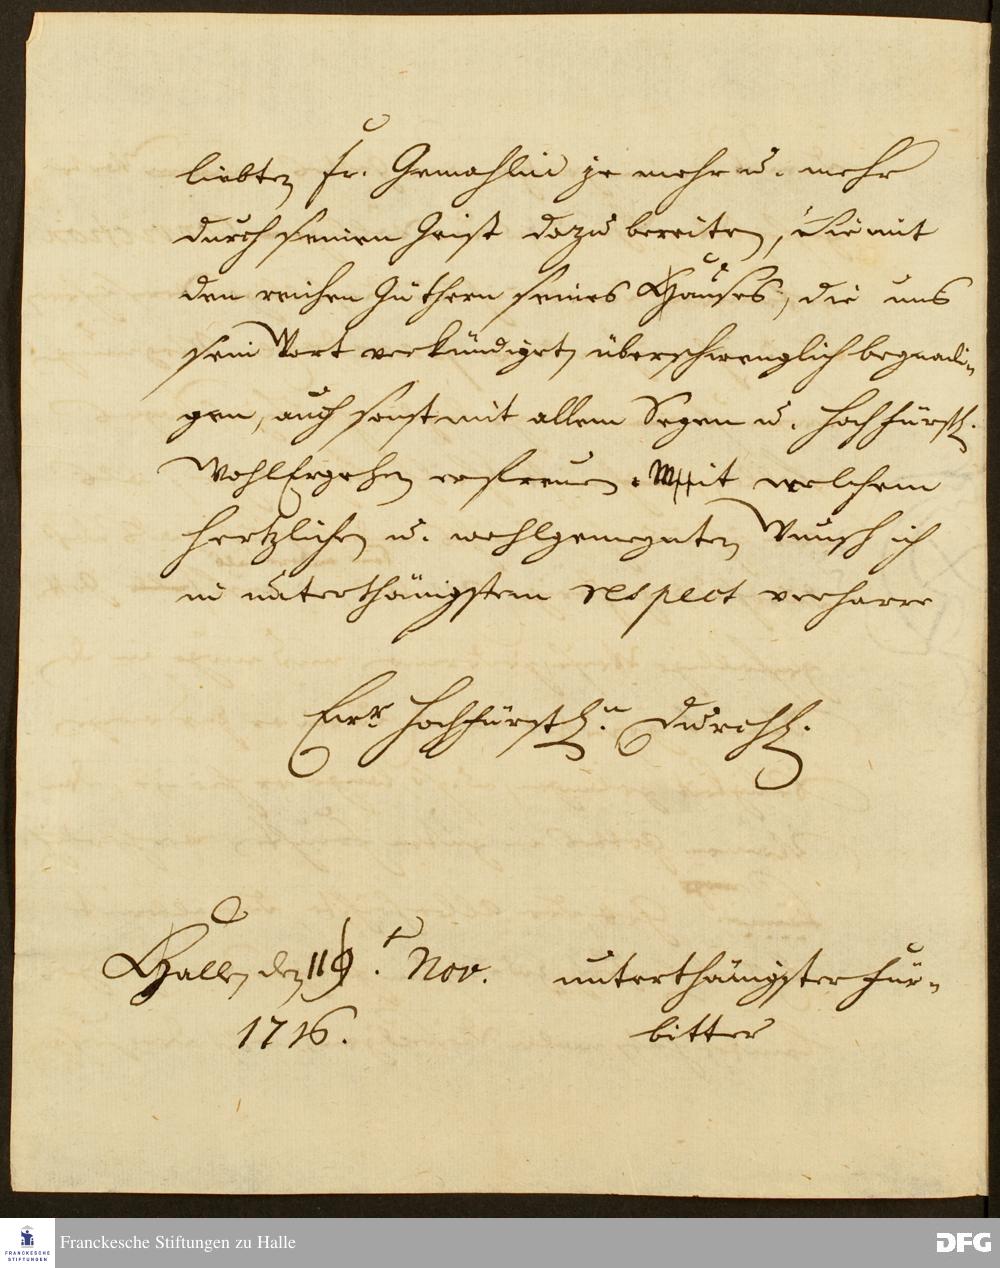 liebten Fr. Gemahlin je mehr u. mehr
durch seinen Geist dazu bereiten, Sie mit
den reichen Güthern seines Hauses, die uns
sein Wort verkündiget, überschwenglich begnadi-
gen, auch sonst mit allem Segen u. Hochfürstl.
WohlErgehen erfreuen. Mit welchem
hertzlichen u. wohlgemeynten Wunsch ich
in unterthänigstem respect verharre
Ewr Hochfürstln. Durchl.
Halle, den Nov.
1716.
unterthänigster Für-
bitter
Franckesche Stiftungen zu Halle
FRANCKESCHE
STIFTUNGEN
DFG